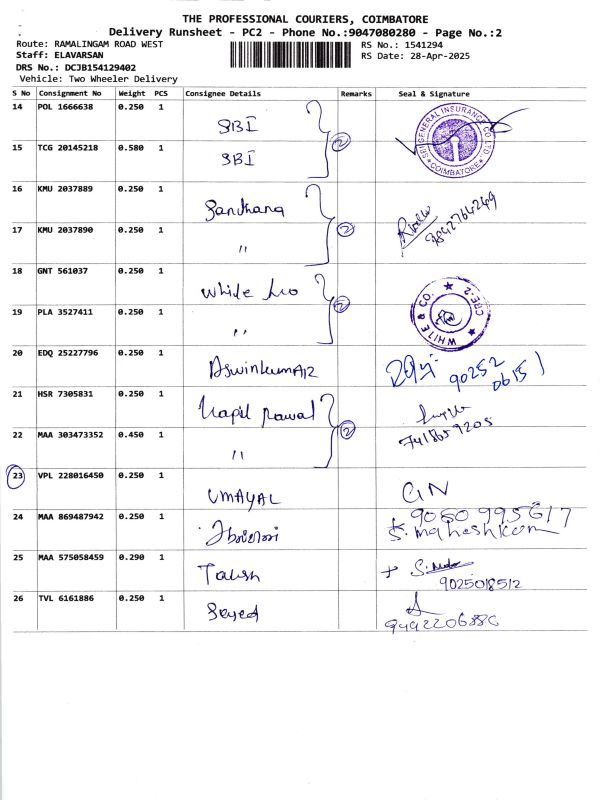 THE PROFESSIONAL COURIERS, COIMBATORE
Delivery Runsheet - PC2 - Phone No.:9047080280 - Page No.:2
Route: RAMALINGAM ROAD WEST RS No.: 1541294
Staff: ELAVARSAN RS Date: 28-Apr-2025
DRS No.: DCJB154129402
Vehicle: Two Wheeler Delivery
S No Consignment No Weight PCS Consignee Details Remarks Seal & Signature
14 POL 1666638 0.250 1 SBI
SBI GENERAL INSURANCE CO. LTD. COIMBATORE
15 TCG 20145218 0.580 1 SBI 2
16 KMU 2037889 0.250 1
9842764249
17 KMU 2037890 0.250 1 " 2
18 GNT 561037 0.250 1 White
WHITE & CO. CBE-2
19 PLA 3527411 0.250 1 " 2
20 EDQ 25227796 0.250 1 AswinkumAR 90252 06151
21 HSR 7305831 0.250 1 Kapil Rawal
7418659205
22 MAA 303473352 0.450 1 " 2
23 VPL 228016450 0.250 1 UMAYAL GN
9080995617
24 MAA 869487942 0.250 1 S. maheshkum
25 MAA 575058459 0.290 1
9025018512
26 TVL 6161886 0.250 1 Seyed